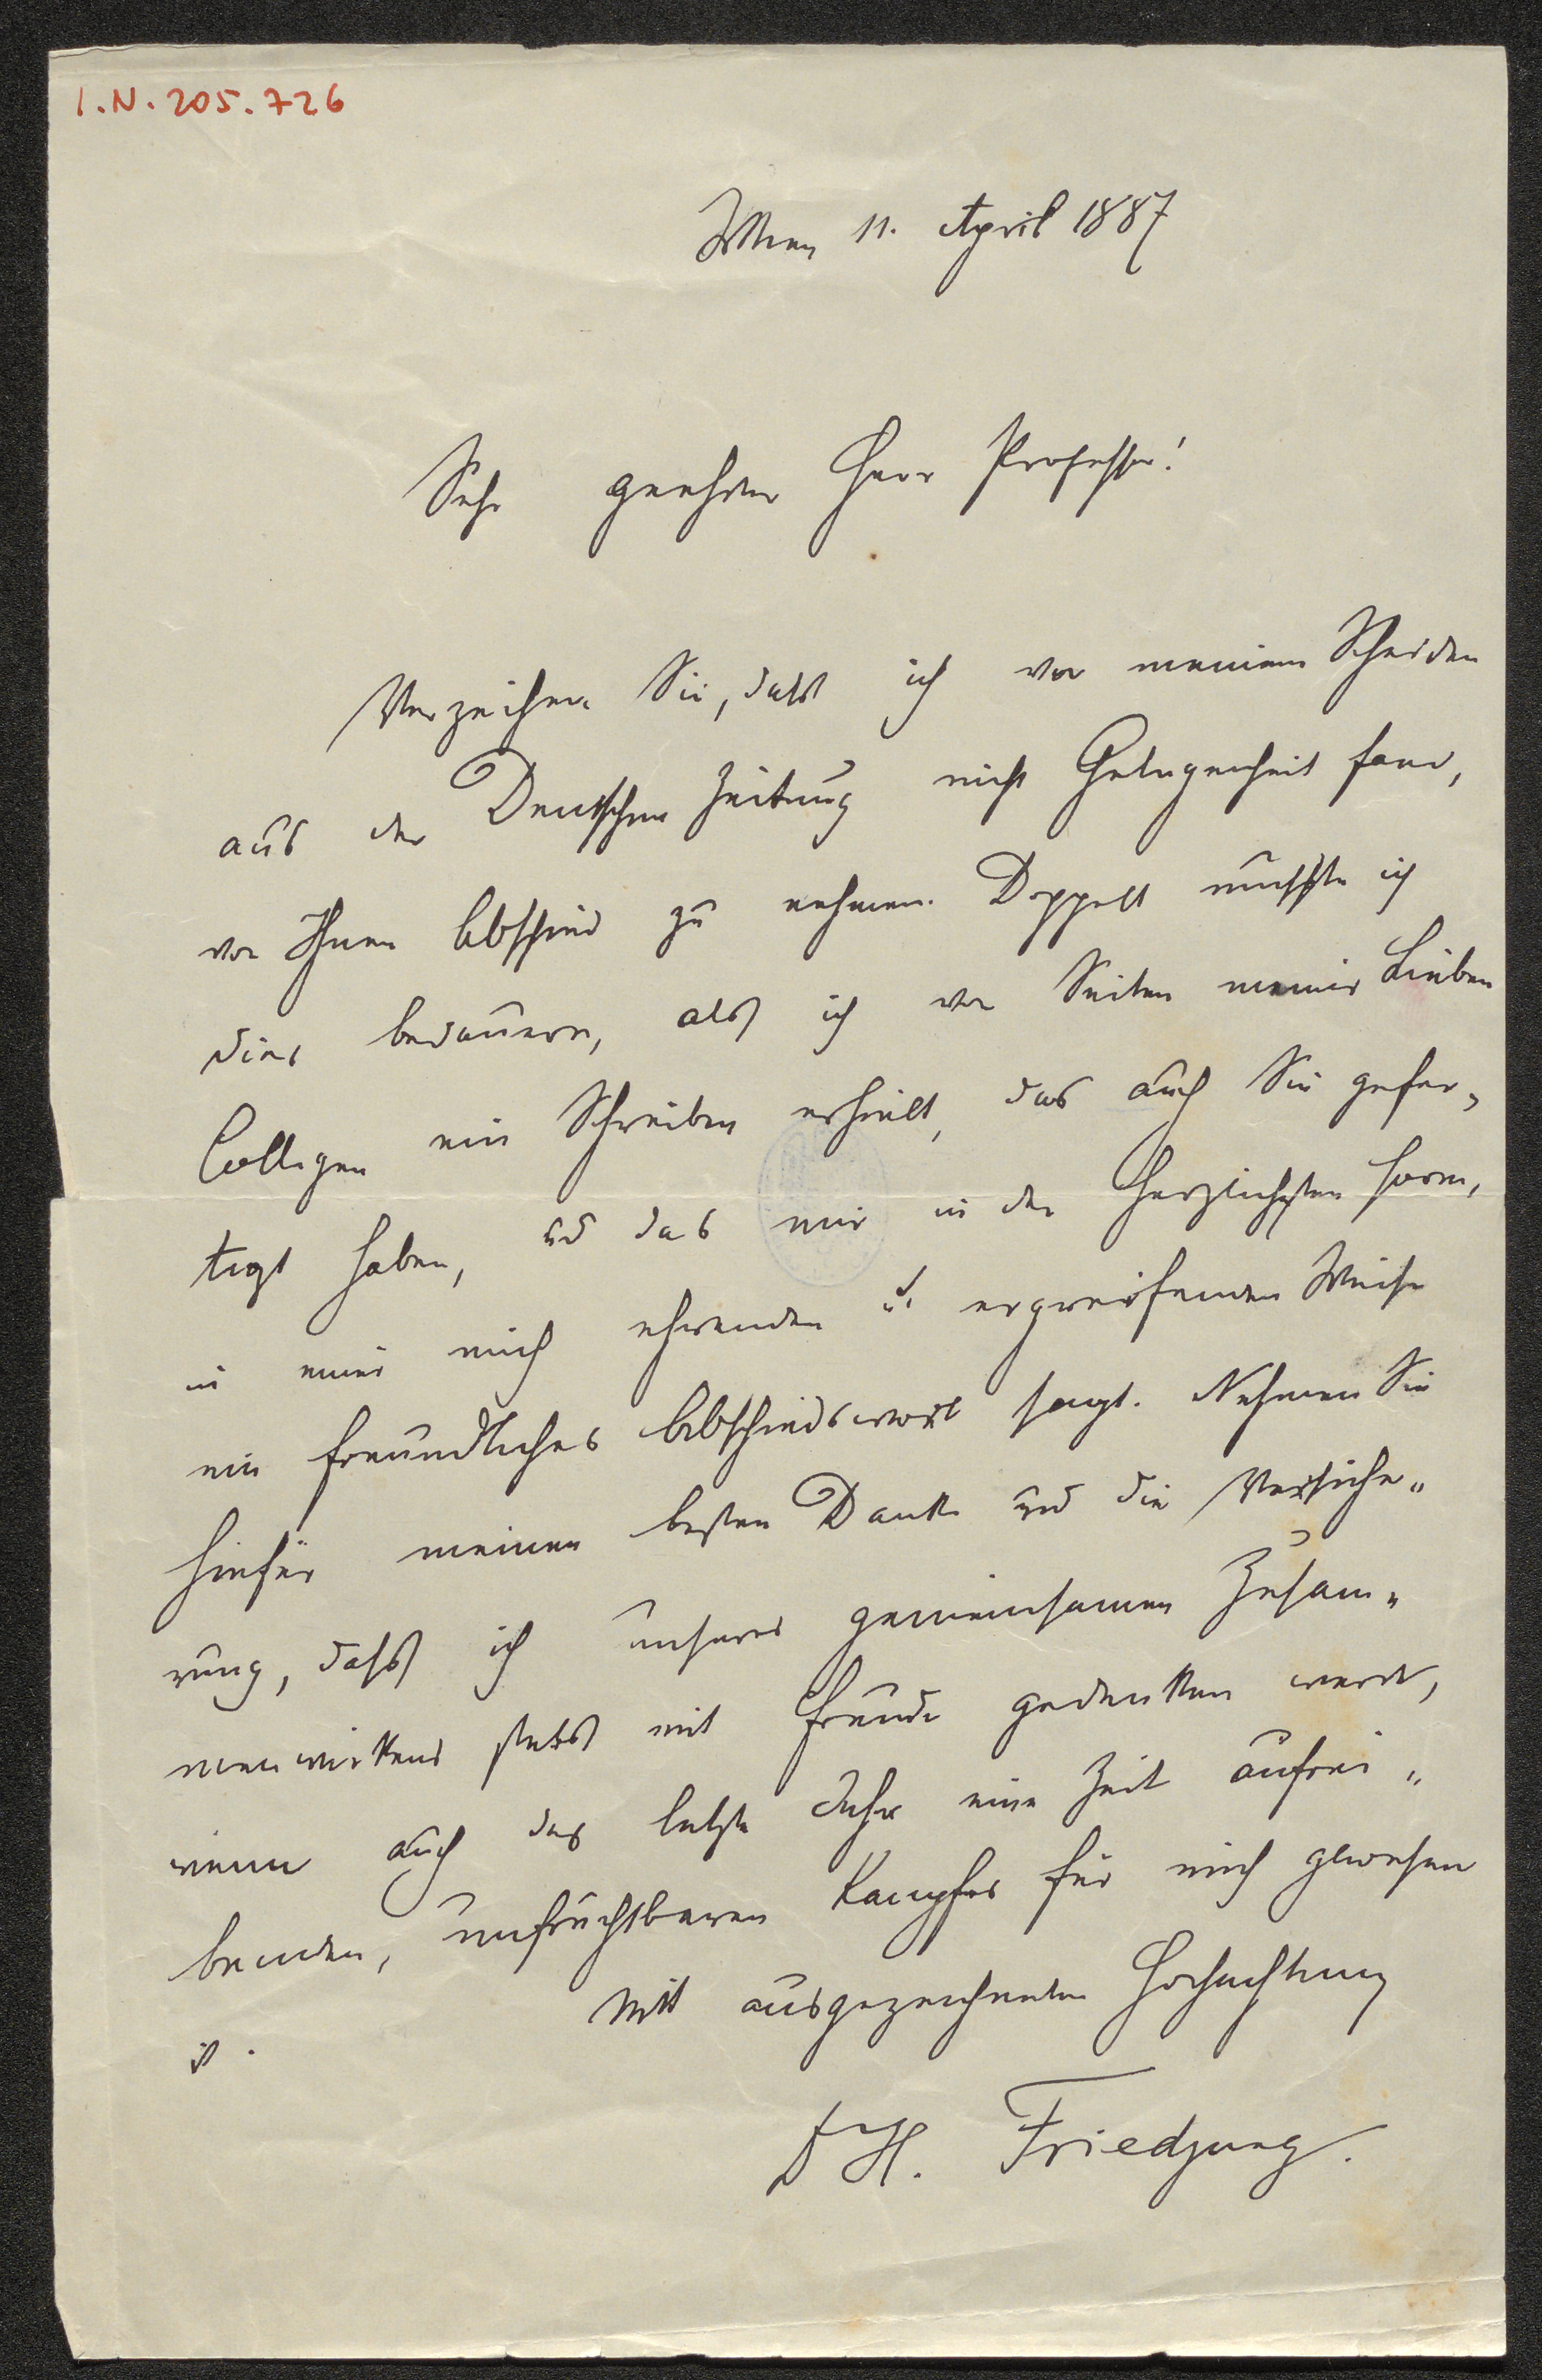 I.N. 205.726
Wien 11. April 1887
Sehr geehrter Herr Professor!
Verzeihen Sie, dass ich vor meinem Scheiden
aus der Deutschen Zeitung nicht Gelegenheit fand,
von Ihnen Abschied zu nehmen. Doppelt musste ich
dies bedauern, als ich von Seiten meiner Lieben
Collegen ein Schreiben erhielt, das auch Sie gefer-
tigt haben, und das mir in der herzlichsten Form,
in einer mich ehrenden u. ergreifenden Weise
ein freundliches Abschiedswort sagt. Nehmen Sie
hiefür meinen besten Dank und die Versiche-
rung, dass ich unseres gemeinsamen Zusam-
menwirkens stets mit Freude gedenken werde,
wenn auch das letzte Jahr eine Zeit aufrei-
benden, unfruchtbaren Kampfes für mich gewesen
ist.
Mit ausgezeichneter Hochachtung
Dr H. Friedjung.